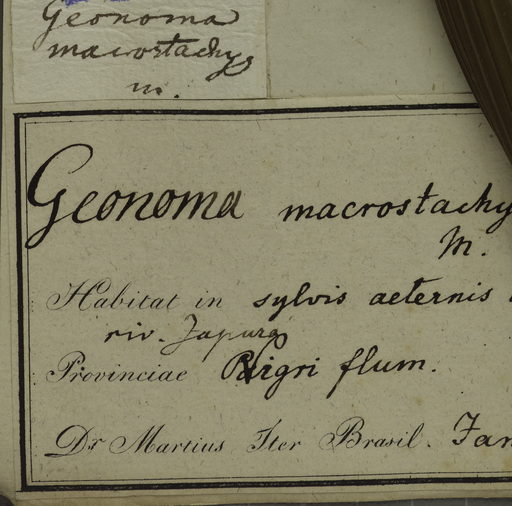 Geonoma
macrostachys
m.
Geonoma macrostachy
M.
Habitat in sylvis aeternis
riv. Japura
Provinciae Nigri flum.
Dr Martius Iter Brasil. Jan